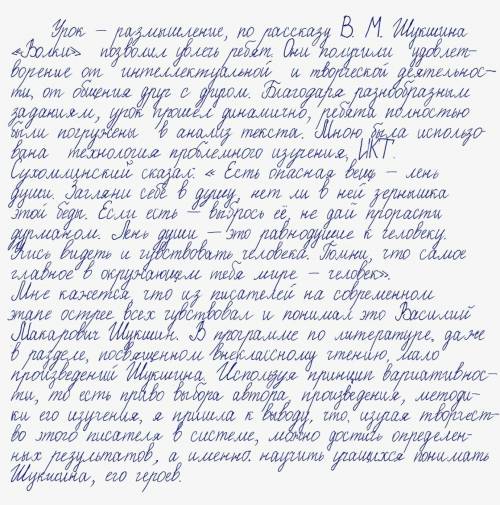 Урок – размышление, по рассказу В. М. Шукшина
«Волки» позволил увлечь ребят. Они получили удовлет-
ворение от интеллектуальной и творческой деятельнос-
ти, от общения друг с другом. Благодаря разнообразным
заданиям, урок прошёл динамично, ребята полностью
были погружены в анализ текста. Мною была использо-
вана технология проблемного изучения, ИКТ.
Сухомлинский сказал: « Есть опасная вещь – лень
души. Загляни себе в душу, нет ли в ней зернышка
этой беды. Если есть – выбрось её, не дай прорасти
дурманом. Лень души – это равнодушие к человеку.
Учись видеть и чувствовать человека. Помни, что самое
главное в окружающем тебя мире – человек».
Мне кажется, что из писателей на современном
этапе острее всех чувствовал и понимал это Василий
Макарович Шукшин. В программе по литературе, даже
в разделе, посвященном внеклассному чтению, мало
произведений Шукшина. Используя принцип вариативнос-
ти, то есть право выбора автора, произведения, методи-
ки его изучения, я пришла к выводу, что, изучая творчест-
во этого писателя в системе, можно достичь определен-
ных результатов, а именно: научить учащихся понимать
Шукшина, его героев.